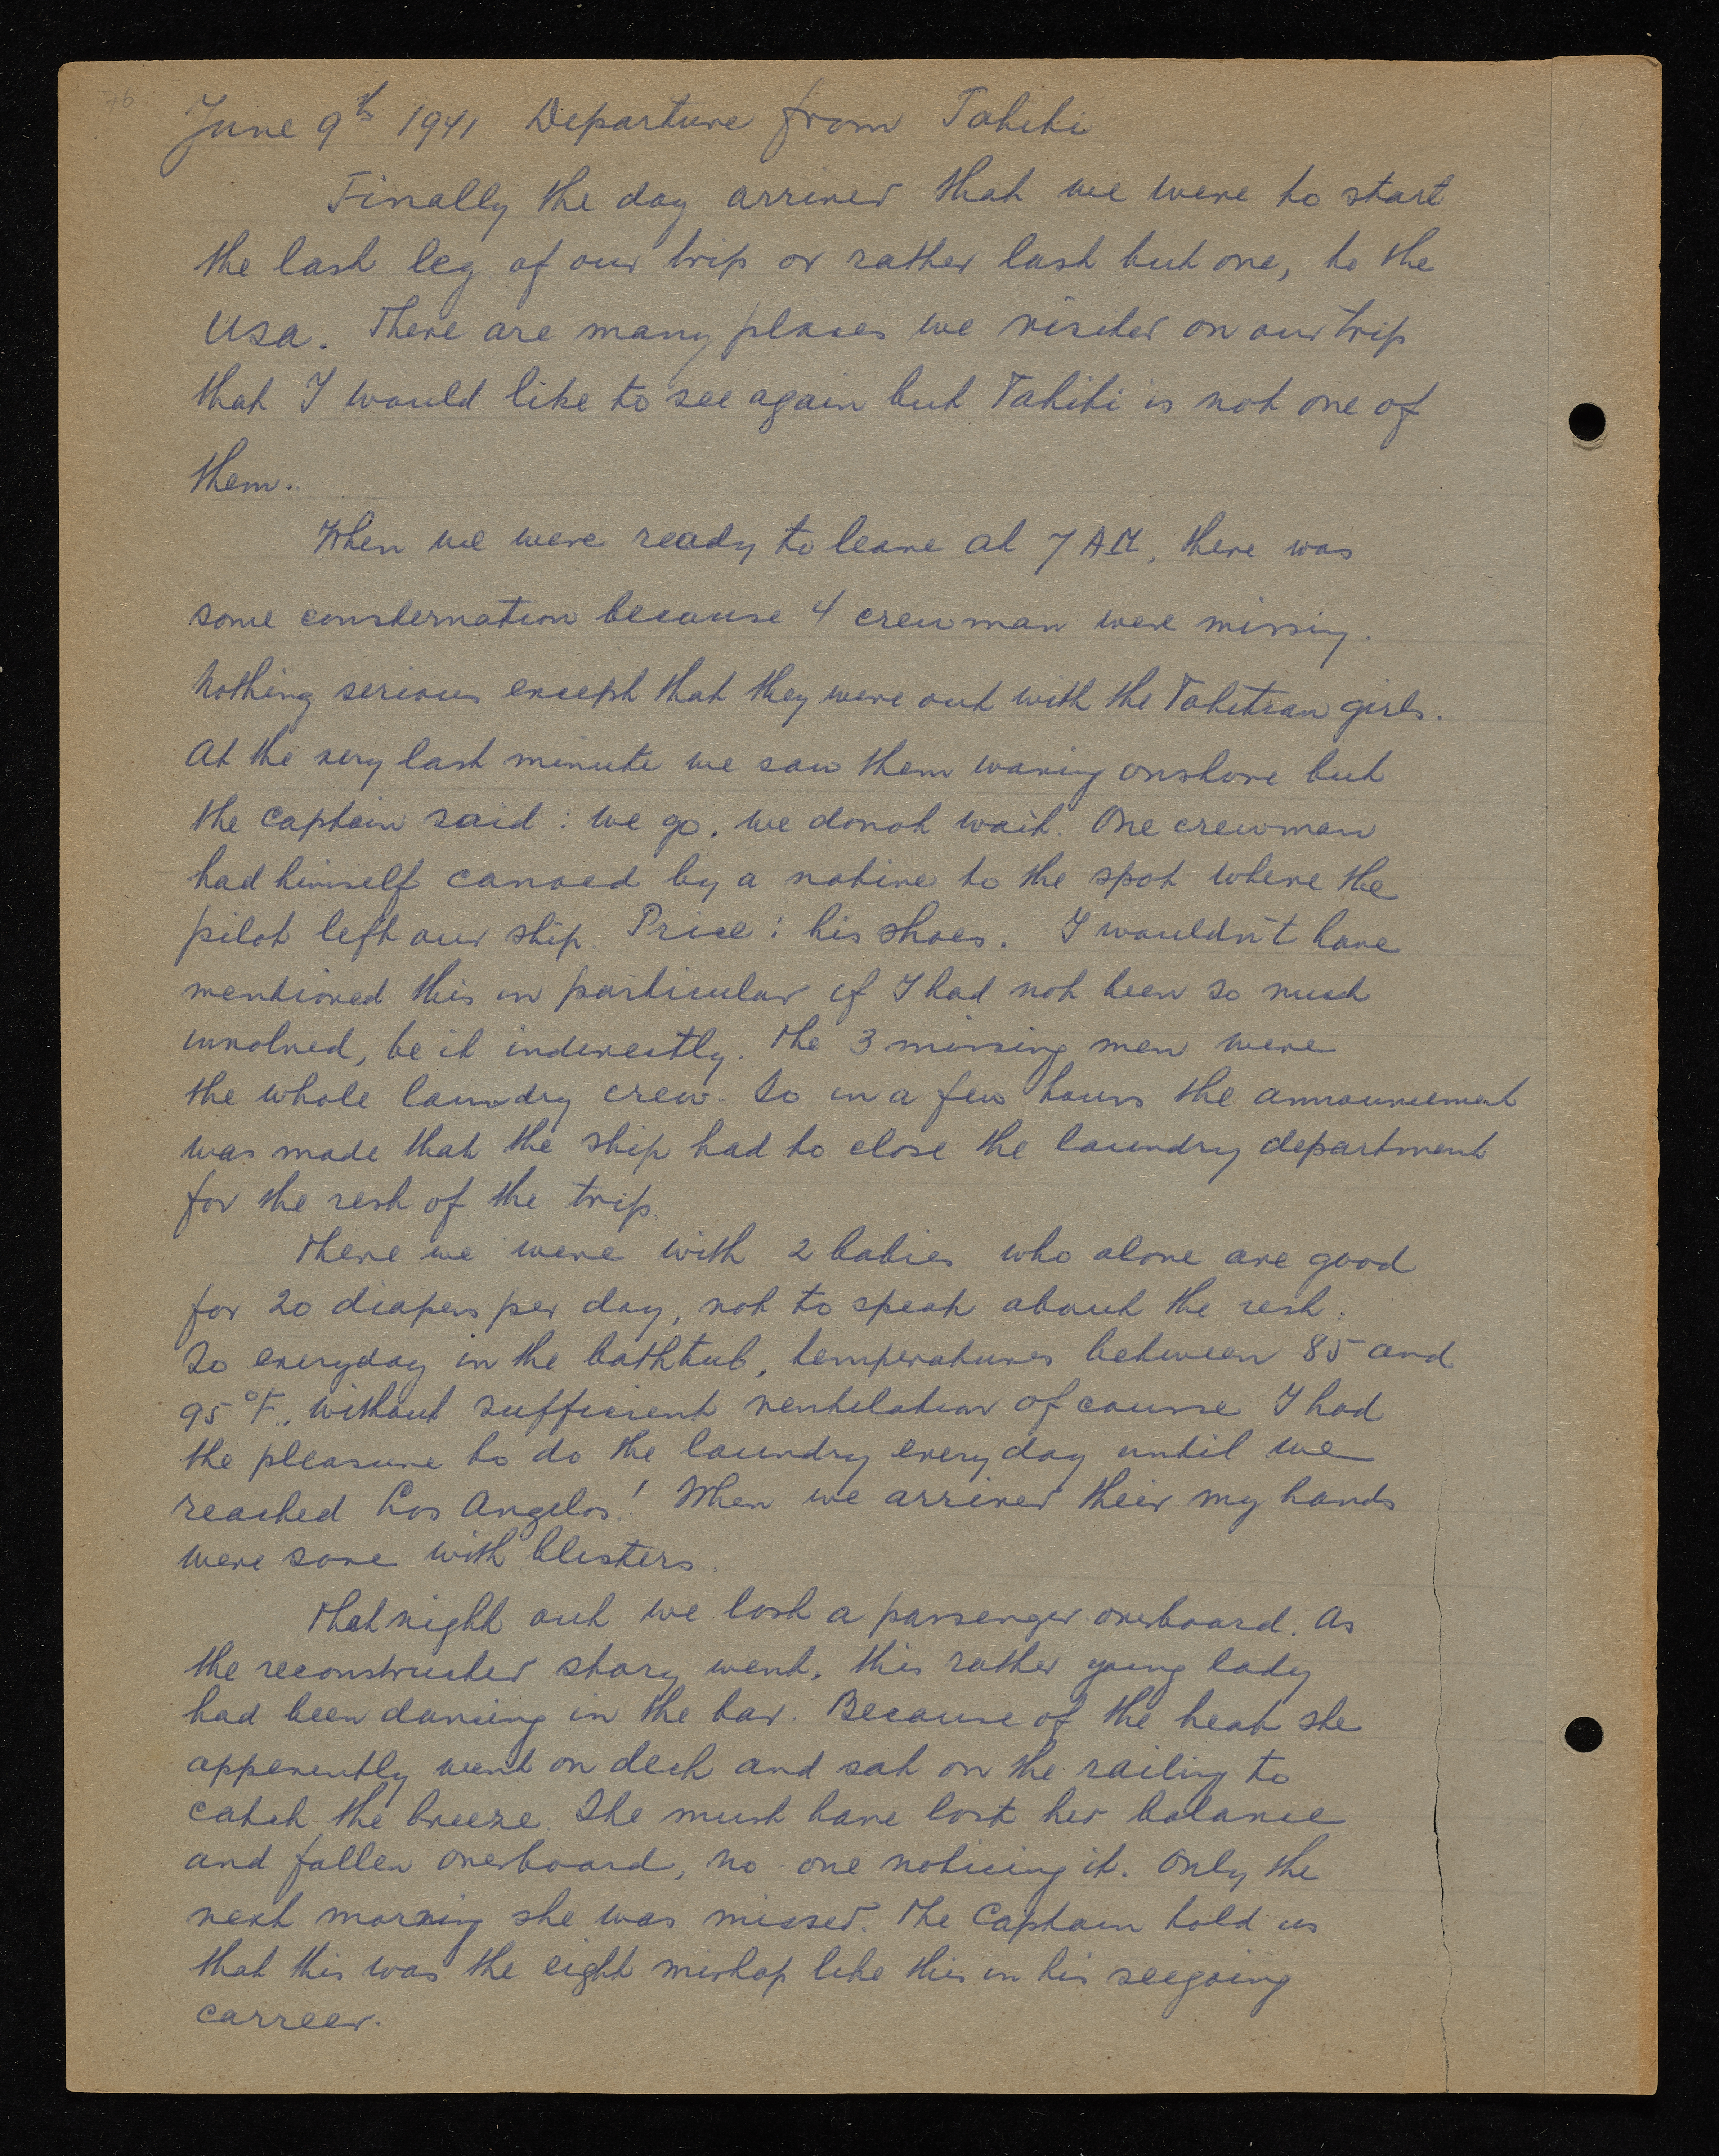 76
June 9th 1941 Departure from Tahiti
Finally the day arrived that we were to start
the last leg of our trip or rather last but one, to the
USA. There are many places we visited on our trip
that I would like to see again but Tahiti is not one of
them.
When we were ready to leave at 7 AM, there was
some consternation because 4 crewman were missing.
Nothing serious except that they were out with the Tahitian girls.
At the very last minute we saw them waving onshore but
the captain said: we go, we donot wait. One crewman
had himself canoed by a native to the spot where the
pilot left our ship. Price: his shoes. I wouldn't have
mentioned this in particular if I had not been so much
involved, be it indirectly. The 3 missing men were
the whole laundry crew. So in a few hours the announcement
was made that the ship had to close the laundry department
for the rest of the trip.
There we were with 2 babies who alone are good
for 20 diapers per day, not to speak about the rest.
So everyday in the bathtub, temperatures between 85 and
95°F, without sufficient ventilation of course I had
the pleasure to do the laundry every day until we
reached Los Angelos! When we arrived their my hands
were sore with blisters.
That night out we lost a passenger overboard. As
the reconstructed story went, this rather young lady
had been dancing in the bar. Because of the heat she
apperently went on deck and sat on the railing to
catch the breeze. She must have lost her balance
and fallen overboard, no one noticing it. Only the
next morning she was missed. The Captain told us
that this was the eight mishap like this in his seegoing
carreer.